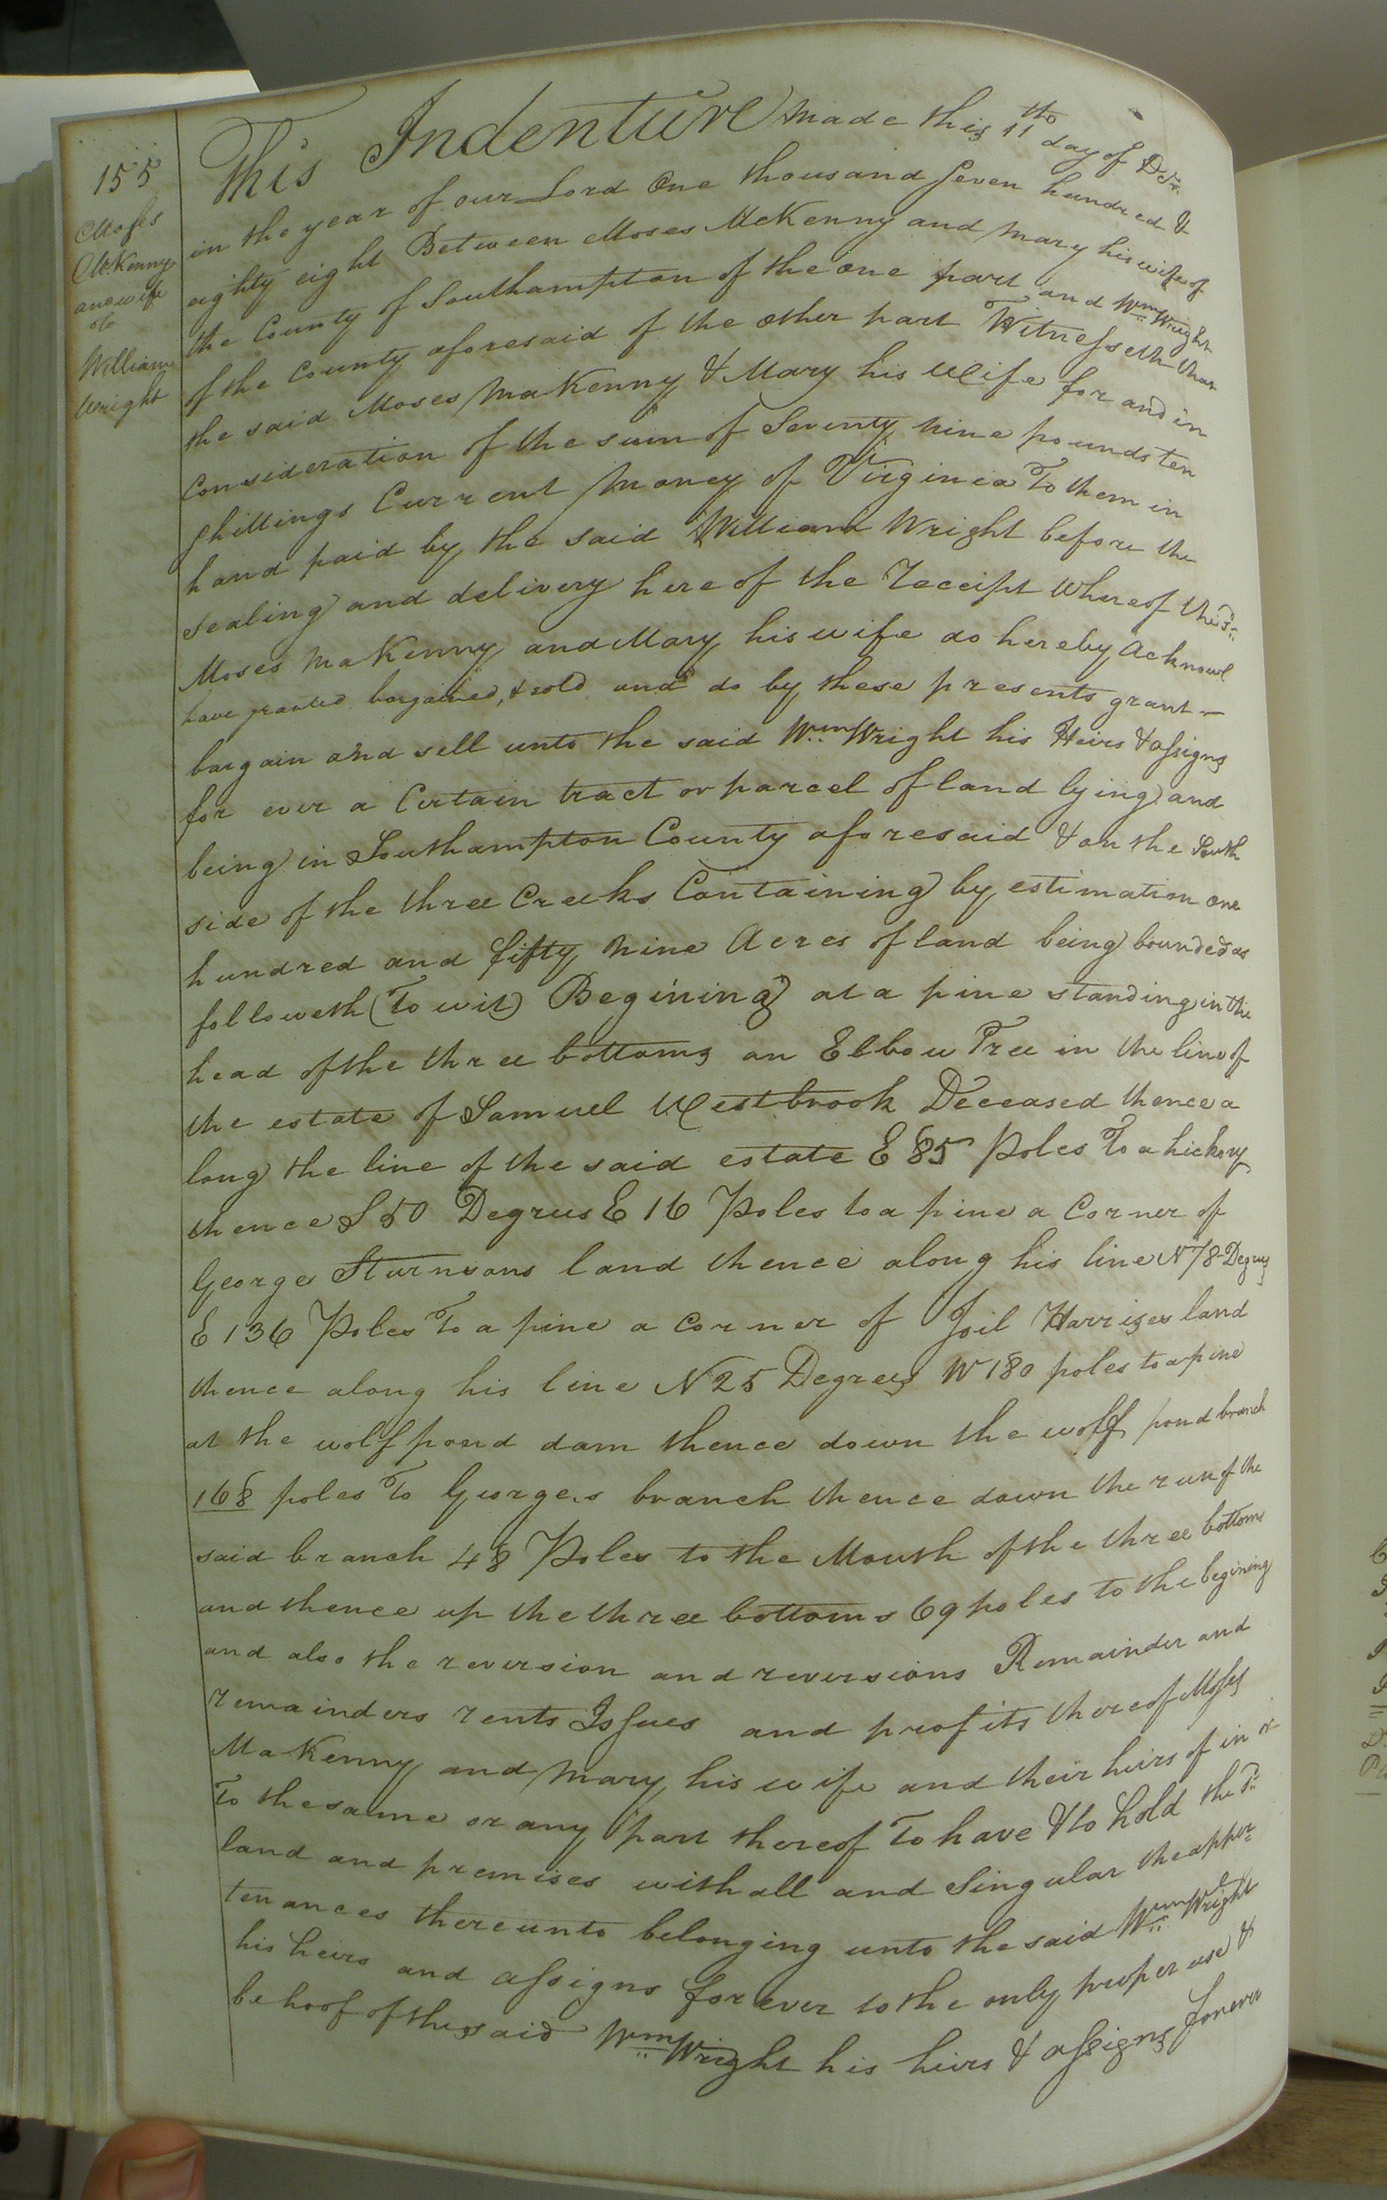 155
Moses
McKenny
and wife
to
William
Wright
This Indenture made this 11th day of Decr.
in the year of our Lord One thousand seven hundred &
eighty eight Between Moses McKenny and Mary his wife of
the County of Southampton of the one part and Wm. Wright
of the County aforesaid of the other part Witnesseth that
the said Moses MaKenny & Mary his Wife for and in
Consideration of the sum of Seventy nine pounds ten
shillings Current money of Virginia To them in
hand paid by the said William Wright before the
sealing and delivery here of the receipt whereof the sd.
Moses MaKenny and Mary his wife do hereby Acknowl
have granted bargained, & sold and do by these presents grant
bargain and sell unto the said Wm. Wright his Heirs & assigns
for ever a Certain tract or parcel of land lying and
being in Southampton County aforesaid & on the South
side of the three Creeks Containing by estimation one
hundred and fifty nine Acres of land being bounded as
followeth (To wit) Begining at a pine standing in the
head of the three bottoms an Elbow Tree in the line of
the estate of Samuel Westbrook Deceased thence a
long the line of the said estate E 85 Poles To a hickory
thence S 50 Degrees E 16 Poles to a pine a Corner of
George Sturnsons land thence along his line N 78 Degrees
E 136 Poles To a pine a corner of Joil Harrises land
thence along his line N 25 Degrees W 180 poles to a pine
at the wolf pond dam thence down the wolf pond branch
168 poles To Georges branch thence down the run of the
said branch 48 Poles to the Mouth of the three bottoms
and thence up the three bottoms 69 poles to the begining
and also the reversion and reversions Remainder and
remainders rents Issues and profits thereof Moses
MaKenny and Mary his wife and their heirs of in or
To the same or any part thereof To have & to hold the sd.
land and premises with all and Singular the appur
tenances thereunto belonging unto the said Wm. Wright
his heirs and assigns for ever to the only proper use &
behoof of the said Wm. Wright his heirs & assigns forever